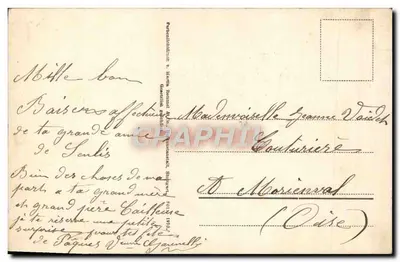 Mille bon
Baisers affectueux
de ta grande amie
de Senlis
Bien des choses de ma
part a ta grand mère
et grand père Cailleuse
je te reserve une petite
surprise pour tes fête
de Pâques
Mademoiselle Jeanne
Couturière
A Morienval
(Oise)
CPAPHIL